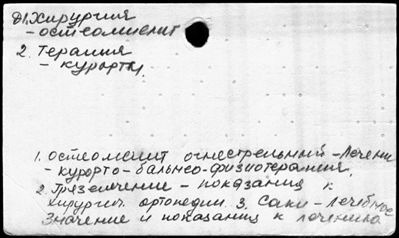 1. Хирургия
- остеомиелит
2. Терапия
- курорты.
1. Остеомиелит огнестрельный - лечение
- курорто-бальнео-физиотерапия.
2. Грязелечение - показания к
хирургич. ортопедии. 3. Саки - лечебное
значение и показания к лечению